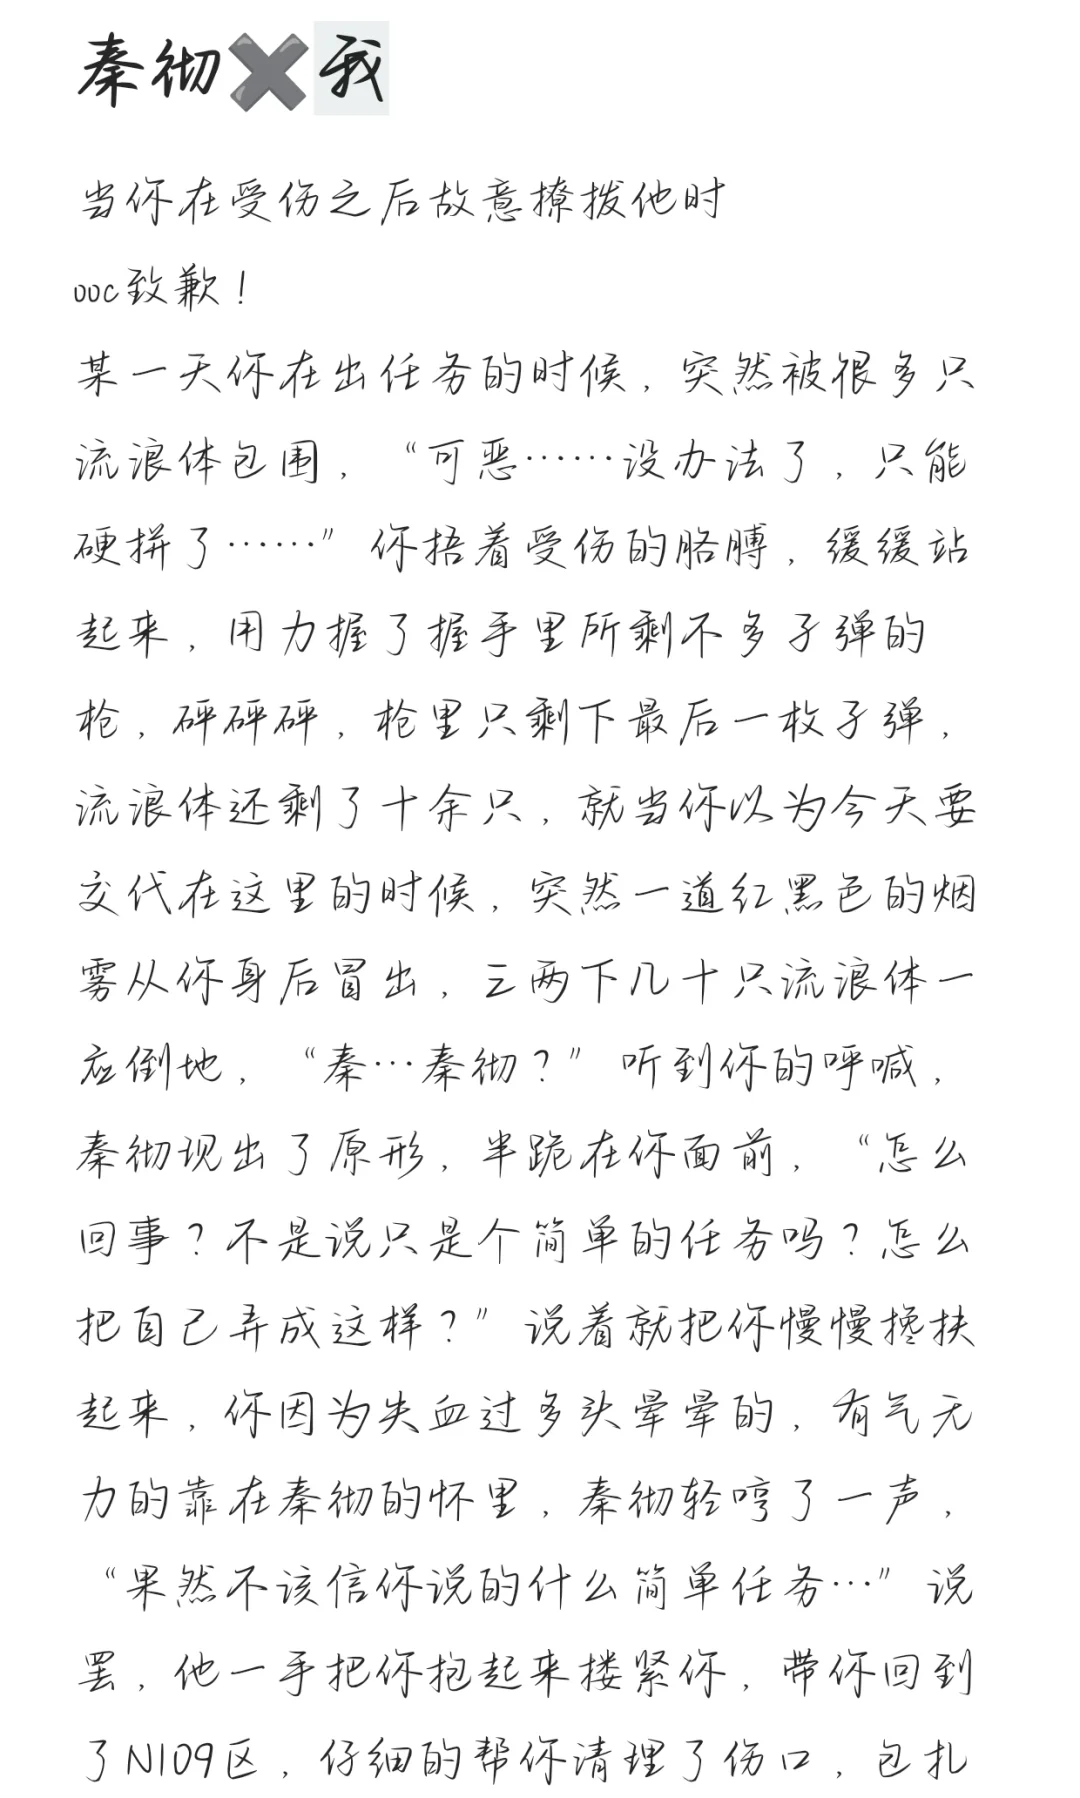 秦彻✖️我
当你在受伤之后故意撩拨他时
ooc致歉！
某一天你在出任务的时候，突然被很多只
流浪体包围，“可恶……没办法了，只能
硬拼了……”你捂着受伤的胳膊，缓缓站
起来，用力握了握手里所剩不多子弹的
枪，砰砰砰，枪里只剩下最后一枚子弹，
流浪体还剩了十余只，就当你以为今天要
交代在这里的时候，突然一道红黑色的烟
雾从你身后冒出，三两下几十只流浪体一
应倒地，“秦…秦彻？”听到你的呼喊，
秦彻现出了原形，半跪在你面前，“怎么
回事？不是说只是个简单的任务吗？怎么
把自己弄成这样？”说着就把你慢慢搀扶
起来，你因为失血过多头晕晕的，有气无
力的靠在秦彻的怀里，秦彻轻哼了一声，
“果然不该信你说的什么简单任务…”说
罢，他一手把你抱起来搂紧你，带你回到
了N109区，仔细的帮你清理了伤口，包扎